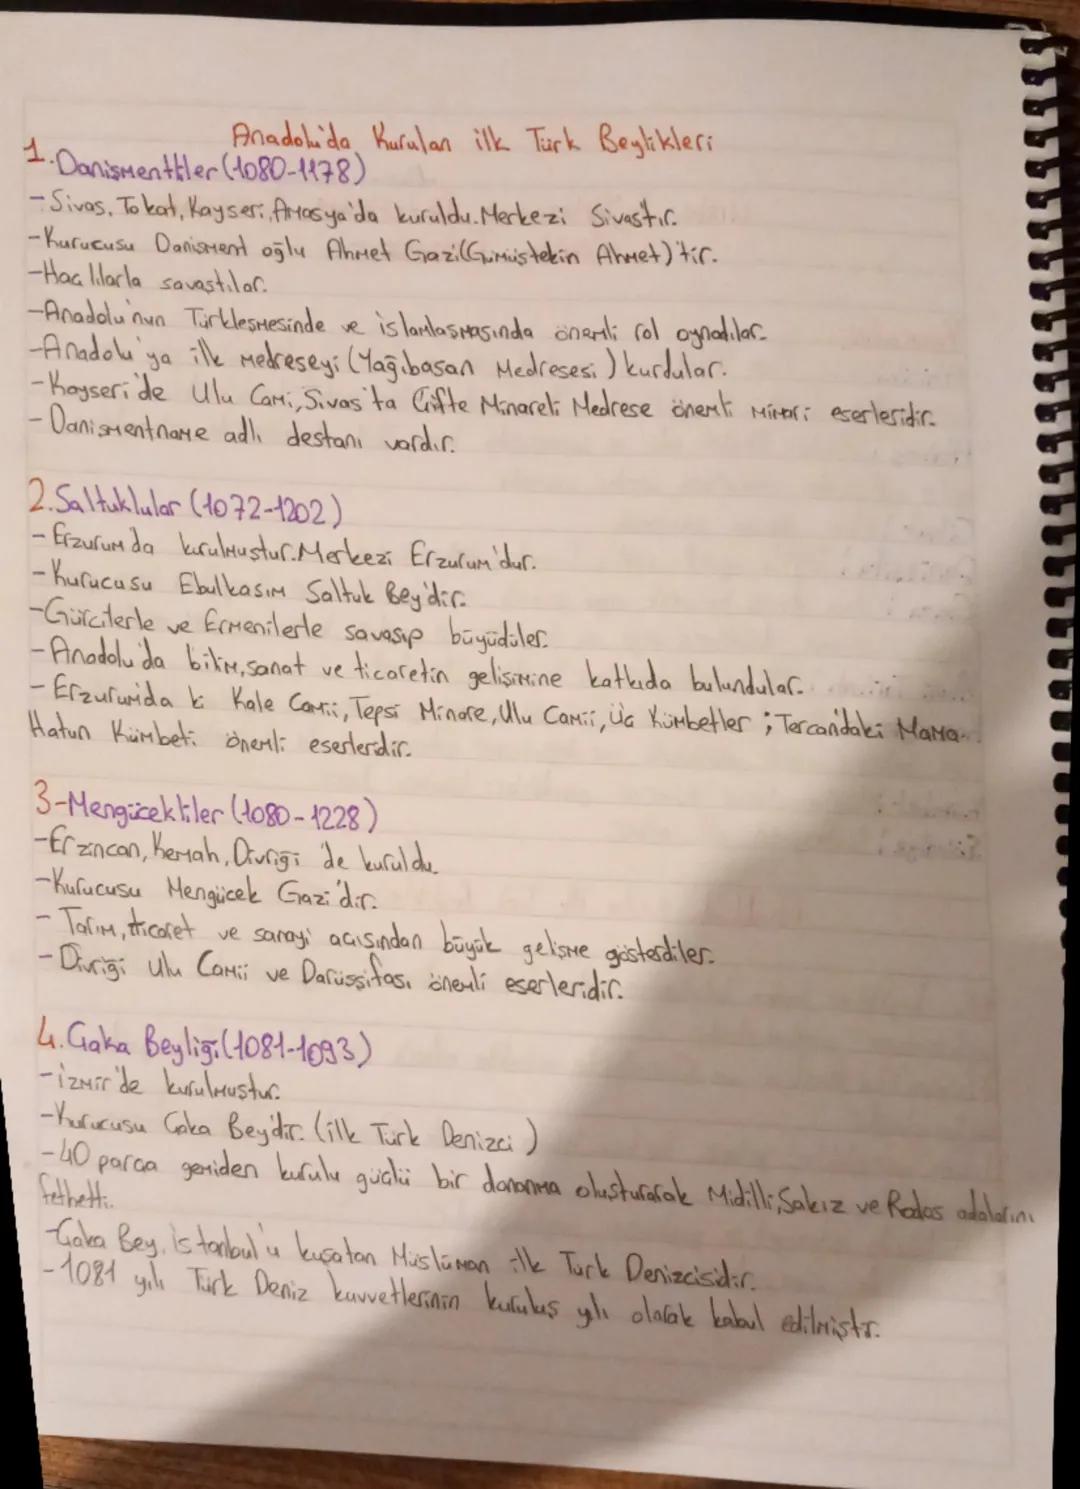 Anadolu'da Kurulan ilk Türk Beylikleri
1.Danişmentliler (1080-1178)
-Sivas, Tokat, Kayseri, Amasya'da kuruldu. Merkezi Sivastır.
-Kurucusu Danişment oğlu Ahmet Gazi (Gümüştekin Ahmet)'tir.
-Haçlılarla savaştılar.
-Anadolu'nun Türkleşmesinde ve islamlaşmasında önemli rol oynadılar.
-Anadolu'ya ilk medreseyi (Yağıbasan Medresesi) kurdular.
-Kayseri'de Ulu Cami, Sivas'ta Çifte Minareli Medrese önemli mimari eserleridir.
-Danişmentname adlı destanı vardır.
2.Saltuklular (1072-1202)
-Erzurum'da kurulmuştur. Merkezi Erzurum'dur.
-Kurucusu Ebulkasım Saltuk Bey'dir.
-Gürcilerle ve Ermenilerle savaşıp büyüdüler.
-Anadolu'da bilim, sanat ve ticaretin gelişimine katkıda bulundular.
-Erzurum'da ki Kale Camii, Tepsi Minare, Ulu Camii, Üç Kümbetler ; Tercan'daki Mama
Hatun Kümbeti önemli eserleridir.
3-Mengücekliler (1080-1228)
-Erzincan, Kemah, Divriği 'de kuruldu.
-Kurucusu Mengücek Gazi'dir.
- Tarım, ticaret ve sanayi açısından büyük gelişme gösterdiler.
-Divriği Ulu Camii ve Darüşşifası önemli eserleridir.
4.Çaka Beyliği (1081-1093)
-izmir'de kurulmuştur.
-Kurucusu Çaka Bey'dir. (ilk Türk Denizci)
-40 parça gemiden kurulu güçlü bir donanma oluşturarak Midilli, Sakız ve Rodos adalarını
fethetti.
-Çaka Bey, istanbul'u kuşatan Müslüman ilk Türk Denizcisidir.
-1081 yılı Türk Deniz kuvvetlerinin kuruluş yılı olarak kabul edilmiştir.